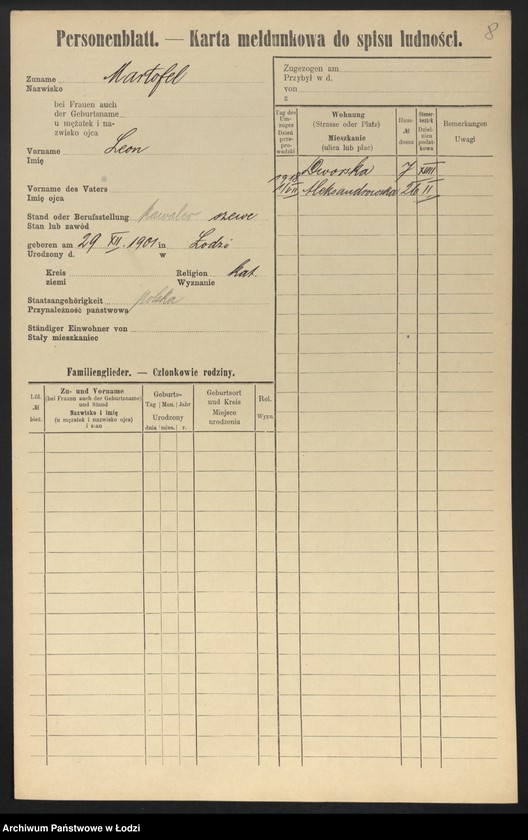 8
Personenblatt. — Karta meldunkowa do spisu ludności.
Zuname Martofel
Nazwisko
bei Frauen auch
der Geburtsname
u mężatek i na-
zwisko ojca
Vorname Leon
Imię
Vorname des Vaters
Imię ojca
Stand oder Berufsstellung kawaler szewc
Stan lub zawód
geboren am 29 XII. 1901 in Łodzi
Urodzony d. w
Kreis Religion kat.
ziemi Wyznanie
Staatsangehörigkeit polska
Przynależność państwowa
Ständiger Einwohner von
Stały mieszkaniec
Zugezogen am
Przybył w d.
von
z
Tag des Um-zuges Dzień prze-prowadzki
Wohnung
(Strasse oder Platz)
Mieszkanie
(ulica lub plac)
Haus- № domu
Steuer-bezirk Dziel-nica podat-kowa
Bemerkungen
Uwagi
Dworska 7 XIII
1918 Aleksandrowska 26 II
Familienglieder. — Członkowie rodziny.
Lfd. № bież.
Zu- und Vorname
(bei Frauen auch der Geburtsname)
und Stand
Nazwisko i imię
(u mężatek i nazwisko ojca)
i stan
Geburts-
Tag Mon. Jahr
Urodzony
dnia mies. r.
Geburtsort
und Kreis
Miejsce
urodzenia
Rel.
Wyzn.
Archiwum Państwowe w Łodzi